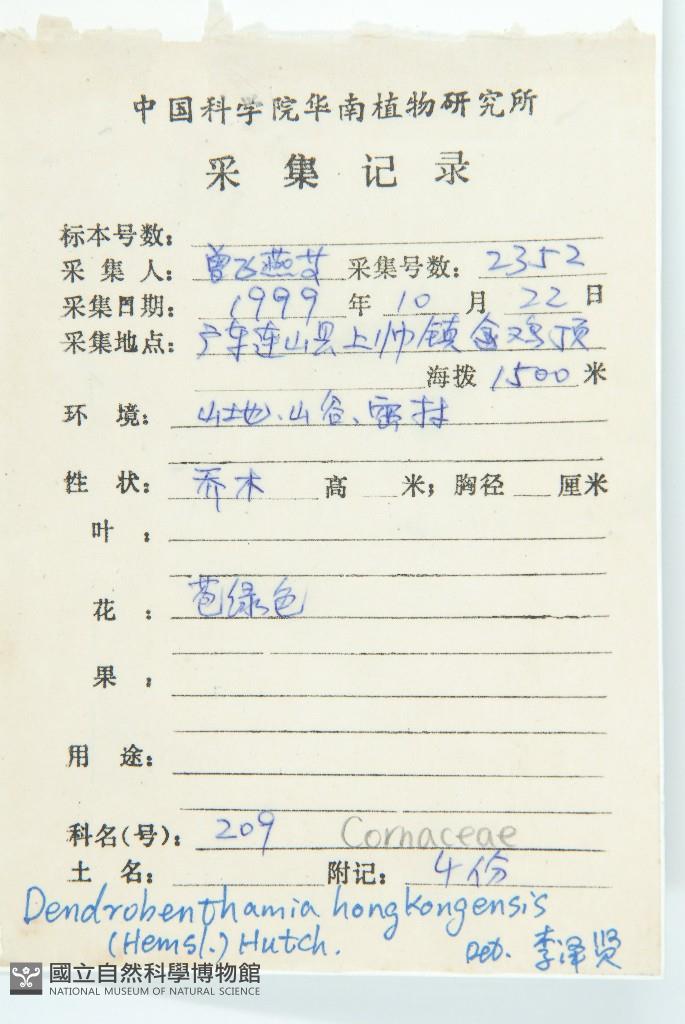 中国科学院华南植物研究所
采集记录
标本号数：
采集人：曾飞燕等 采集号数：2352
采集日期：1999年10月22日
采集地点：广东连山县上帅镇金鸡顶
海拨1500米
环境：山地、山谷、密林
性状：乔木 高 米；胸径 厘米
叶：
花：苞绿色
果：
用途：
科名(号)：209 Cornaceae
土名： 附记：4份
Dendrobenthamia hongkongensis
(Hemsl.) Hutch. Det. 李泽贤
國立自然科學博物館
NATIONAL MUSEUM OF NATURAL SCIENCE